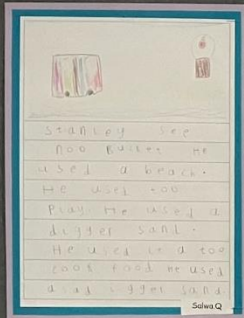 Stanley see
noo Bucket He
used a beach.
He used too
Play He used a
digger sand.
He used it a toe
food He used
a digger sand.
Salwa.Q